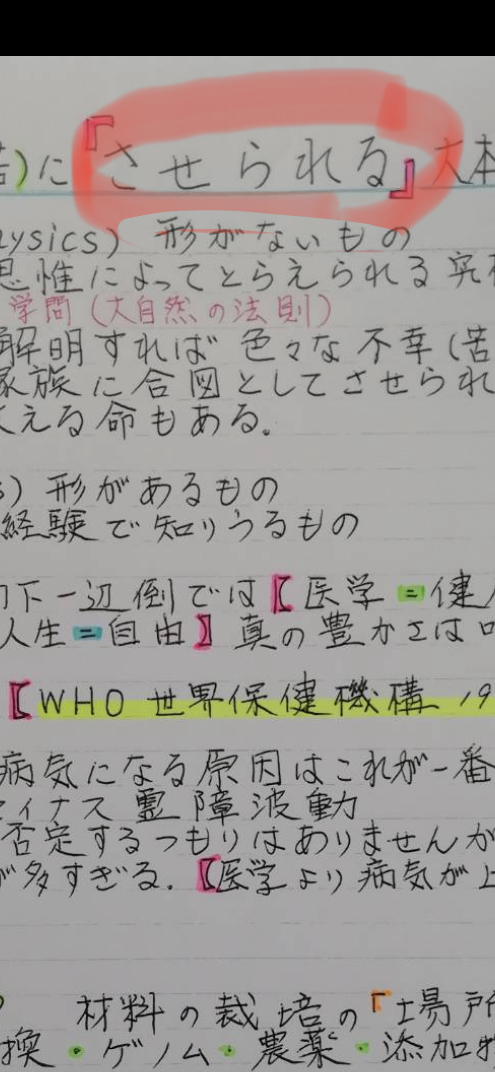 に『させられる』大本
ysics) 形がないもの
思惟によってとらえられる究
学問(大自然の法則)
解明すれば 色々な不幸(苦
家族に合図としてさせられ
える命もある。
) 形があるもの
経験で知りうるもの
下一辺倒では【医学=健
人生=自由】真の豊かさは
【WHO 世界保健機構 19
病気になる原因はこれが一番
イナス霊障波動
否定するつもりはありませんが
が多すぎる.【医学より病気が上
材料の栽培の「場所
換・ゲノム・農薬・添加物